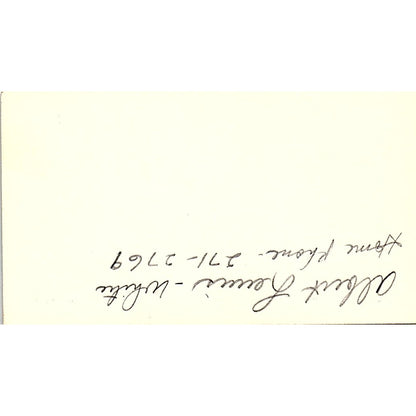 Albert Lewis - White
Home Phone - 271-2769